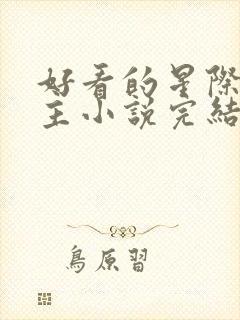 好看的星際
主小說完結
鳥原習